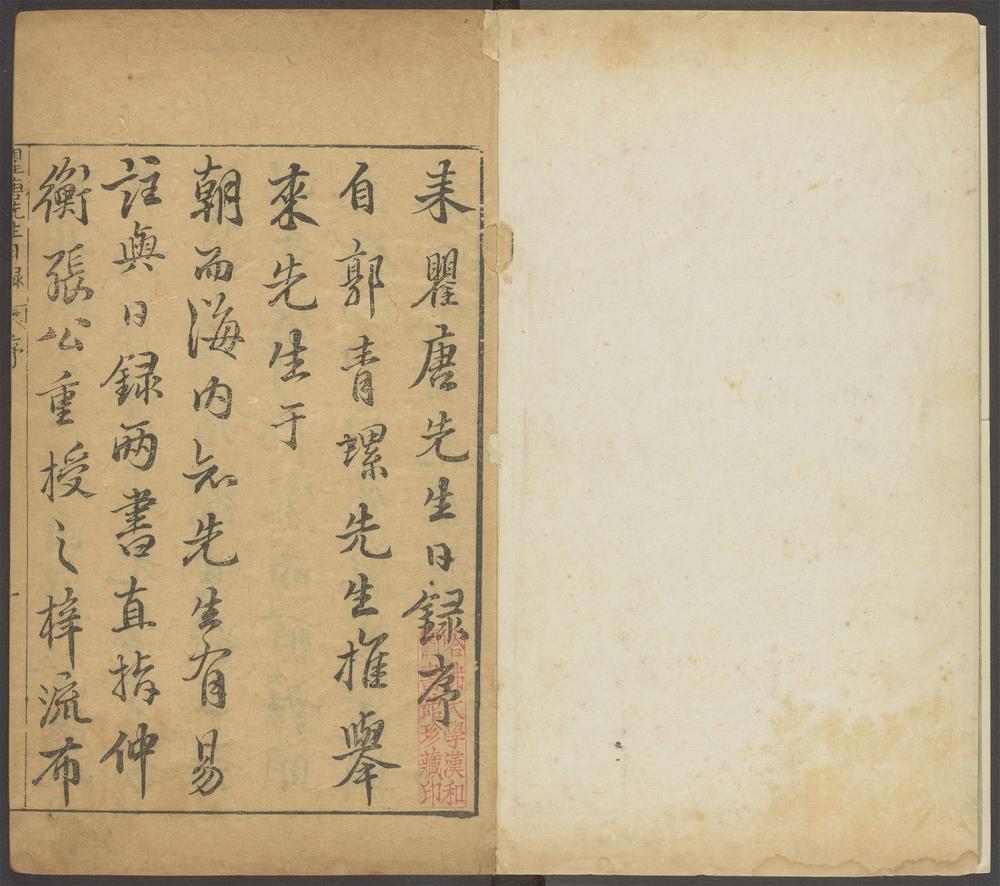 来瞿唐先生日録序
自郭青螺先生推舉
來先生于
朝而海内知先生有易
註與日録兩書直指仲
衡張公重授之梓流布
瞿唐先生日録 序
哈佛大學漢和
圖書館珍藏印